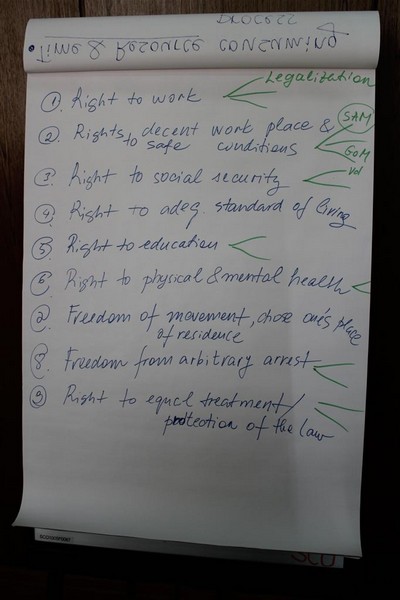 process
Time & Resource consuming
Legalization
① Right to work
② Rights to decent work place &
safe conditions
SAM
GoM
Vol
③ Right to social security
④ Right to adeq. standard of living
⑤ Right to education
⑥ Right to physical & mental health
⑦ Freedom of movement, chose one's place
of residence
⑧ Freedom from arbitrary arrest
⑨ Right to equal treatment/
protection of the law